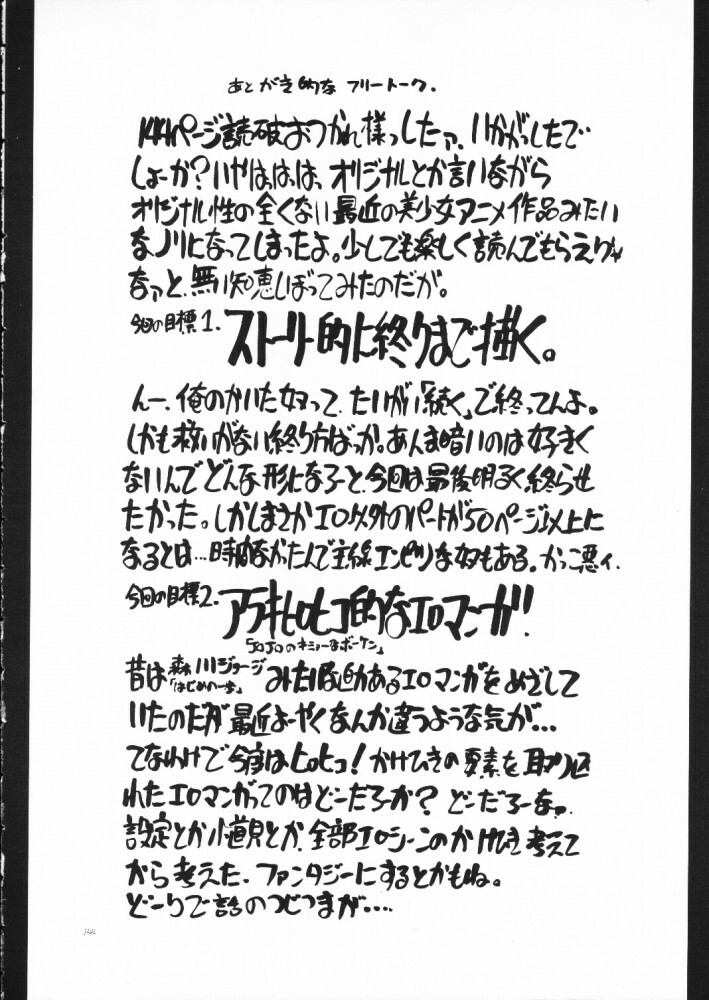 あとがき的な フリートーク.
144ページ読破おつかれ様っしたァ、いかがっしたで
しょーか？いやはははっ、オリジナルとか言いながら
オリジナル性の全くない最近の美少女アニメ作品みたい
なノリになってしまったよ。少しでも楽しく読んでもらえりゃ
なァと、無い知恵しぼってみたのだが。
今回の目標1. ストーリー的に終りまで描く。
んー、俺のかいた奴って、たいがい「続く」で終ってんよ。
しかも救いがない終り方ばっか。あんま暗いのは好きく
ないんでどんな形になろーと、今回は最後明るく終らせ
たかった。しかしまさかエロ以外のパートが50ページ以上に
なるとは…時間なかったんで主線エンピツな奴もある。かっこ悪ィ.
今回の目標2. アラキヒロヒコ的なエロマンガ!
「JOJOのキミョーなボーケン」
昔は森川ジョージ「はじめの一歩」みたいな迫力あるエロマンガをめざして
いたのだが最近よーやくなんか違うような気が…
てなわけで今度はヒロヒコ！かけひきの要素を取り込
れたエロマンガってのはどーだろーか？どーだろーなァ.
設定とか小道具とか、全部エロシーンのかけひき考えて
から考えた. ファンタジーにするとかもね。
どーりで話のつじつまが….
144